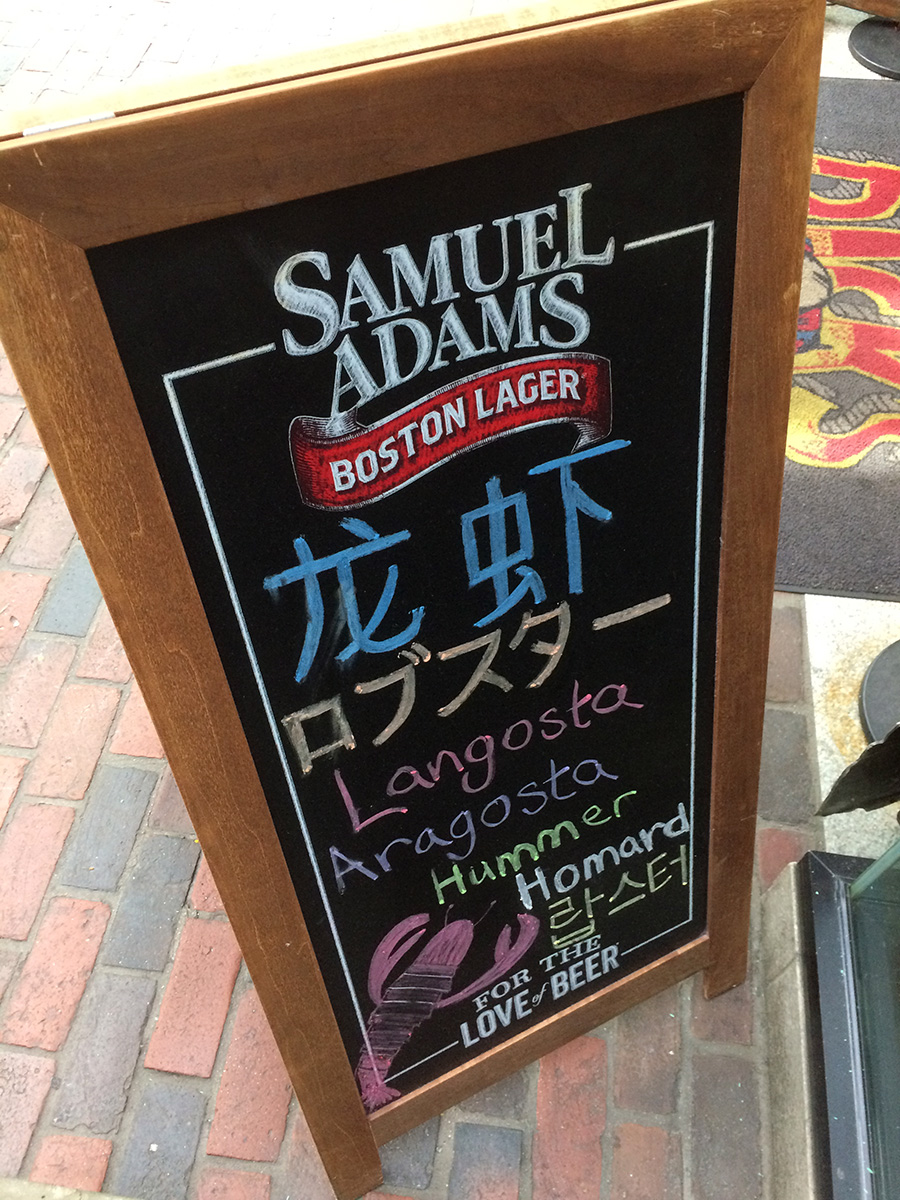 SAMUEL
ADAMS
BOSTON LAGER
龙虾
ロブスター
Langosta
Aragosta
Hummer
Homard
랍스터
FOR THE
LOVE of BEER